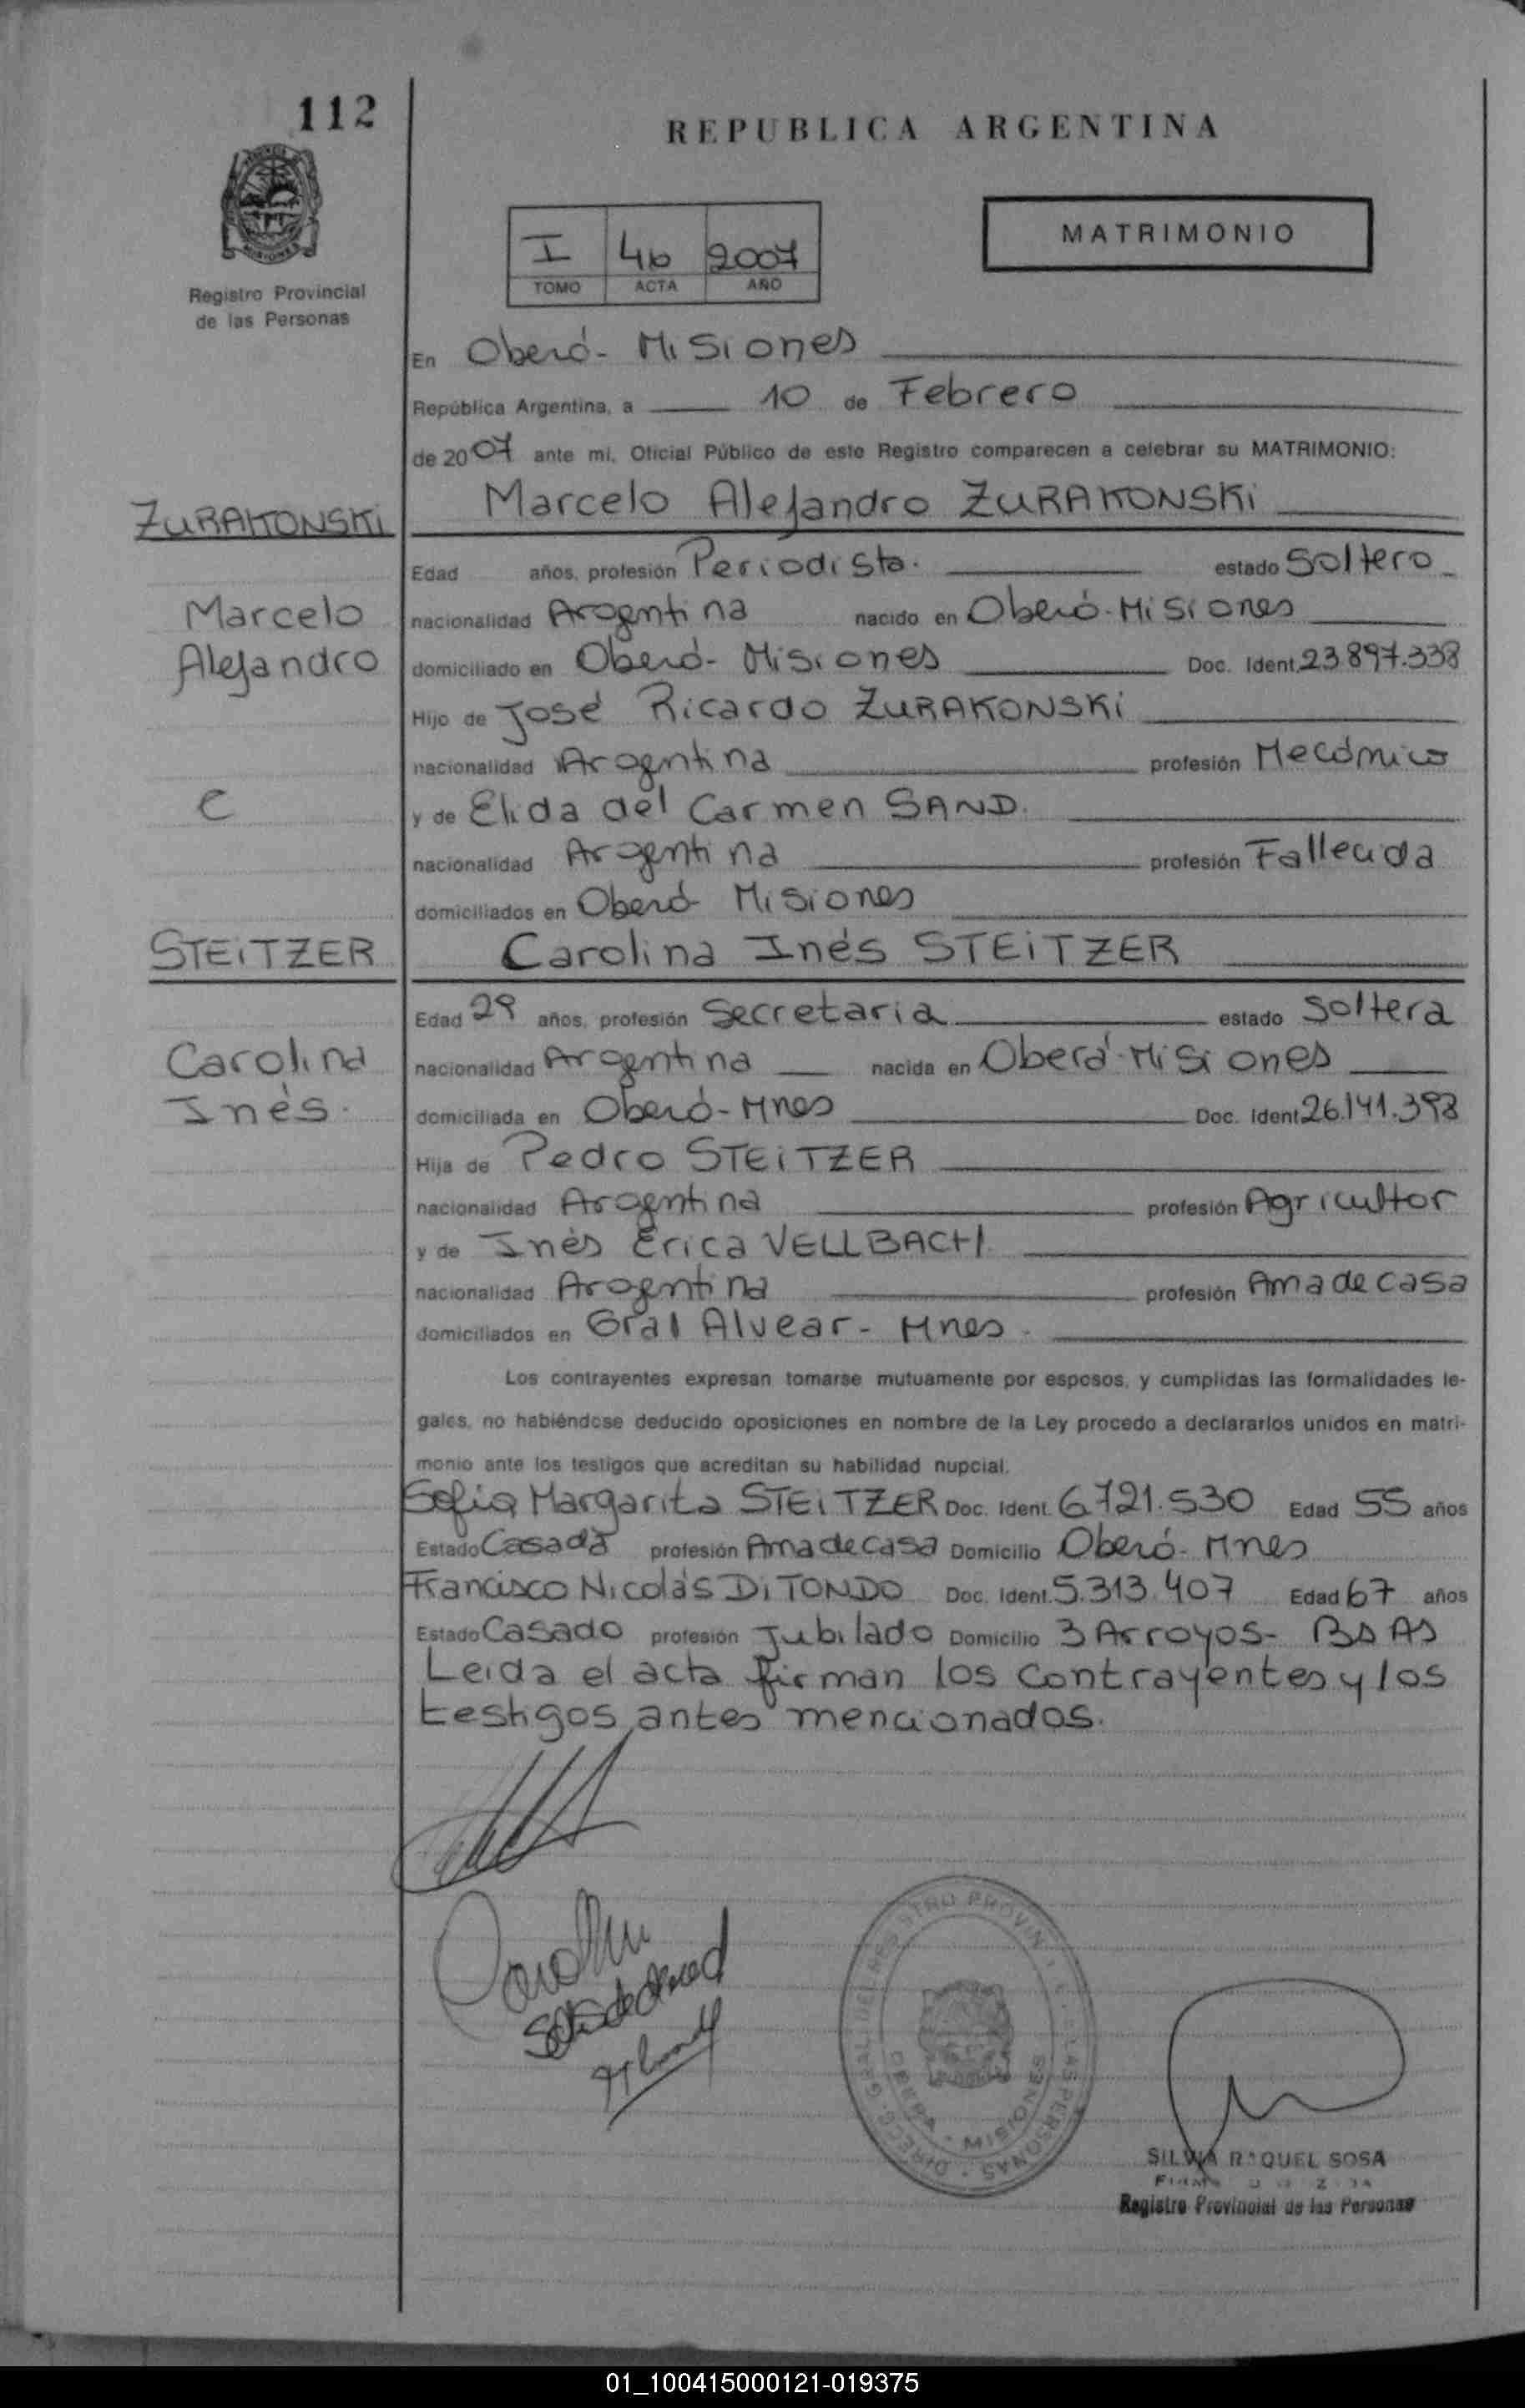 112
REPUBLICA ARGENTINA
MATRIMONIO
I 46 2007
TOMO ACTA AÑO
Registro Provincial
de las Personas
En Oberá - Misiones
República Argentina, a 10 de Febrero
de 2007 ante mi, Oficial Público de este Registro comparecen a celebrar su MATRIMONIO:
ZURAKONSKi
Marcelo Alejandro ZURAKONSKi
Edad años, profesión Periodista. estado Soltero
Marcelo
nacionalidad Argentina nacido en Oberá - Misiones
Alejandro
domiciliado en Oberá - Misiones Doc. Ident. 23.897.338
Hijo de José Ricardo ZURAKONSKi
nacionalidad Argentina profesión Mecánico
C
y de Elida del Carmen SAND.
nacionalidad Argentina profesión Fallecida
domiciliados en Oberá - Misiones
STEiTZER
Carolina Inés STEiTZER
Edad 29 años, profesión Secretaria estado Soltera
Carolina
nacionalidad Argentina nacida en Oberá - Misiones
Inés.
domiciliada en Oberá - Mnes Doc. Ident. 26.141.398
Hija de Pedro STEiTZER
nacionalidad Argentina profesión Agricultor
y de Inés Erica VELLBACH.
nacionalidad Argentina profesión Ama de casa
domiciliados en Gral Alvear - Mnes.
Los contrayentes expresan tomarse mutuamente por esposos, y cumplidas las formalidades le-
gales, no habiéndose deducido oposiciones en nombre de la Ley procedo a declararlos unidos en matri-
monio ante los testigos que acreditan su habilidad nupcial.
Sofia Margarita STEiTZER Doc. Ident. 6.721.530 Edad 55 años
Estado Casada profesión Ama de casa Domicilio Oberá - Mnes
Francisco Nicolás Di TONDO Doc. Ident. 5.313.407 Edad 67 años
Estado Casado profesión Jubilado Domicilio 3 Arroyos - Bs As
Leida el acta firman los contrayentes y los
testigos antes mencionados.
DIRECC. GRAL. DEL REGISTRO PROVINCIAL DE LAS PERSONAS
OBERA - MISIONES
SILVIA RAQUEL SOSA
Registro Provincial de las Personas
01_100415000121-019375